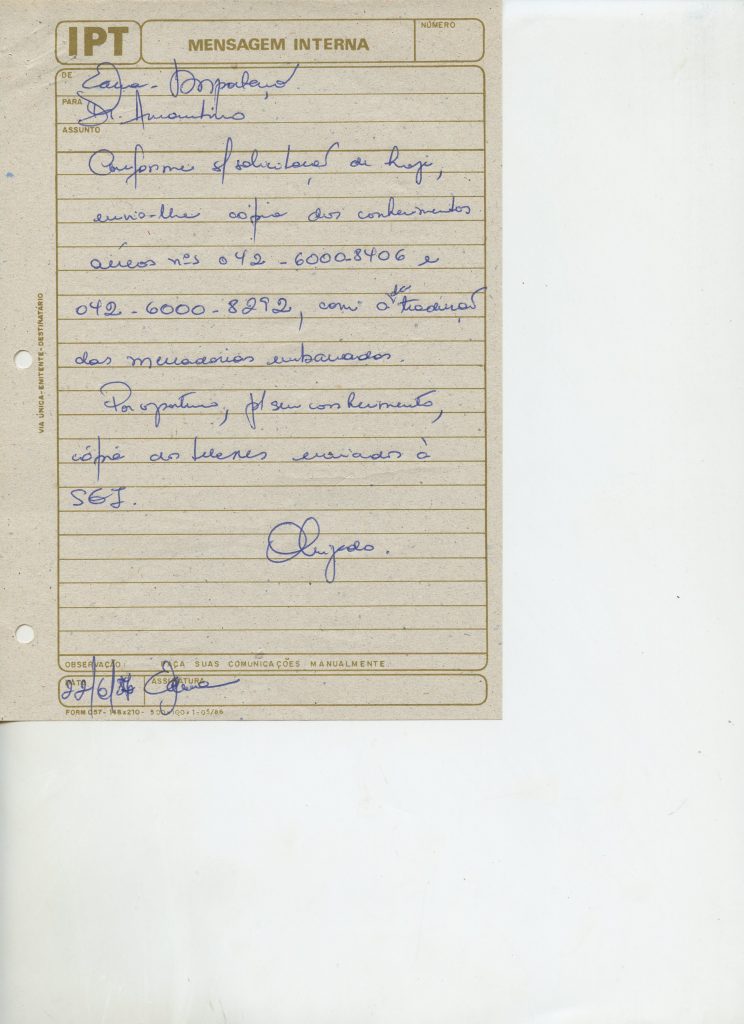 IPT
MENSAGEM INTERNA
NÚMERO
DE Edna - Importação
PARA Dr. Amantino
ASSUNTO
Conforme s/ solicitação de hoje,
envio-lhe cópia dos conhecimentos
aéreos nºs 042 - 6000-8406 e
042 - 6000 - 8292, com a tradução
das mercadorias embarcadas.
Por oportuno, p/ seu conhecimento,
cópia dos telexes enviados à
SEI.
Obrigado.
VIA ÚNICA-EMITENTE-DESTINATÁRIO
OBSERVAÇÃO: FAÇA SUAS COMUNICAÇÕES MANUALMENTE
DATA 22/6/87 ASSINATURA Edna
FORM 057 - 148x210 - 500x100x1-05/86